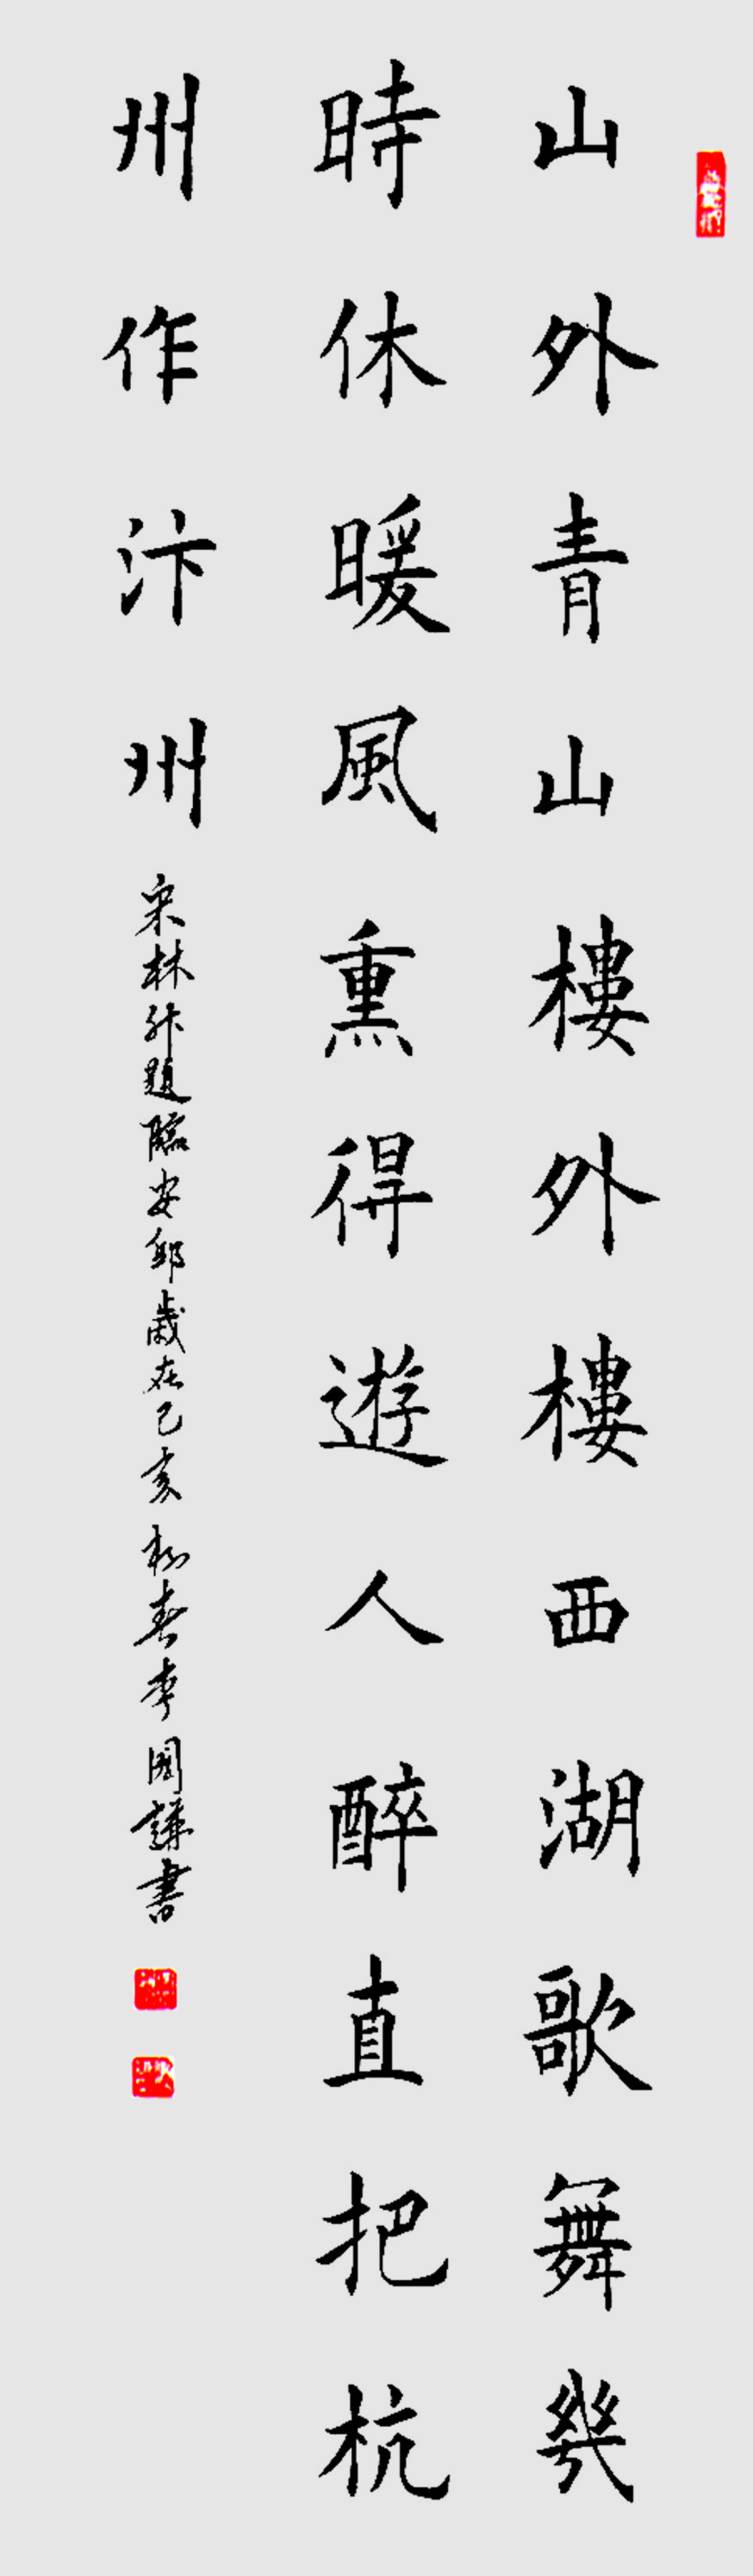 山外青山樓外樓西湖歌舞幾
時休暖風熏得遊人醉直把杭
州作汴州
宋林升題臨安邸歲在己亥杪春李謙書